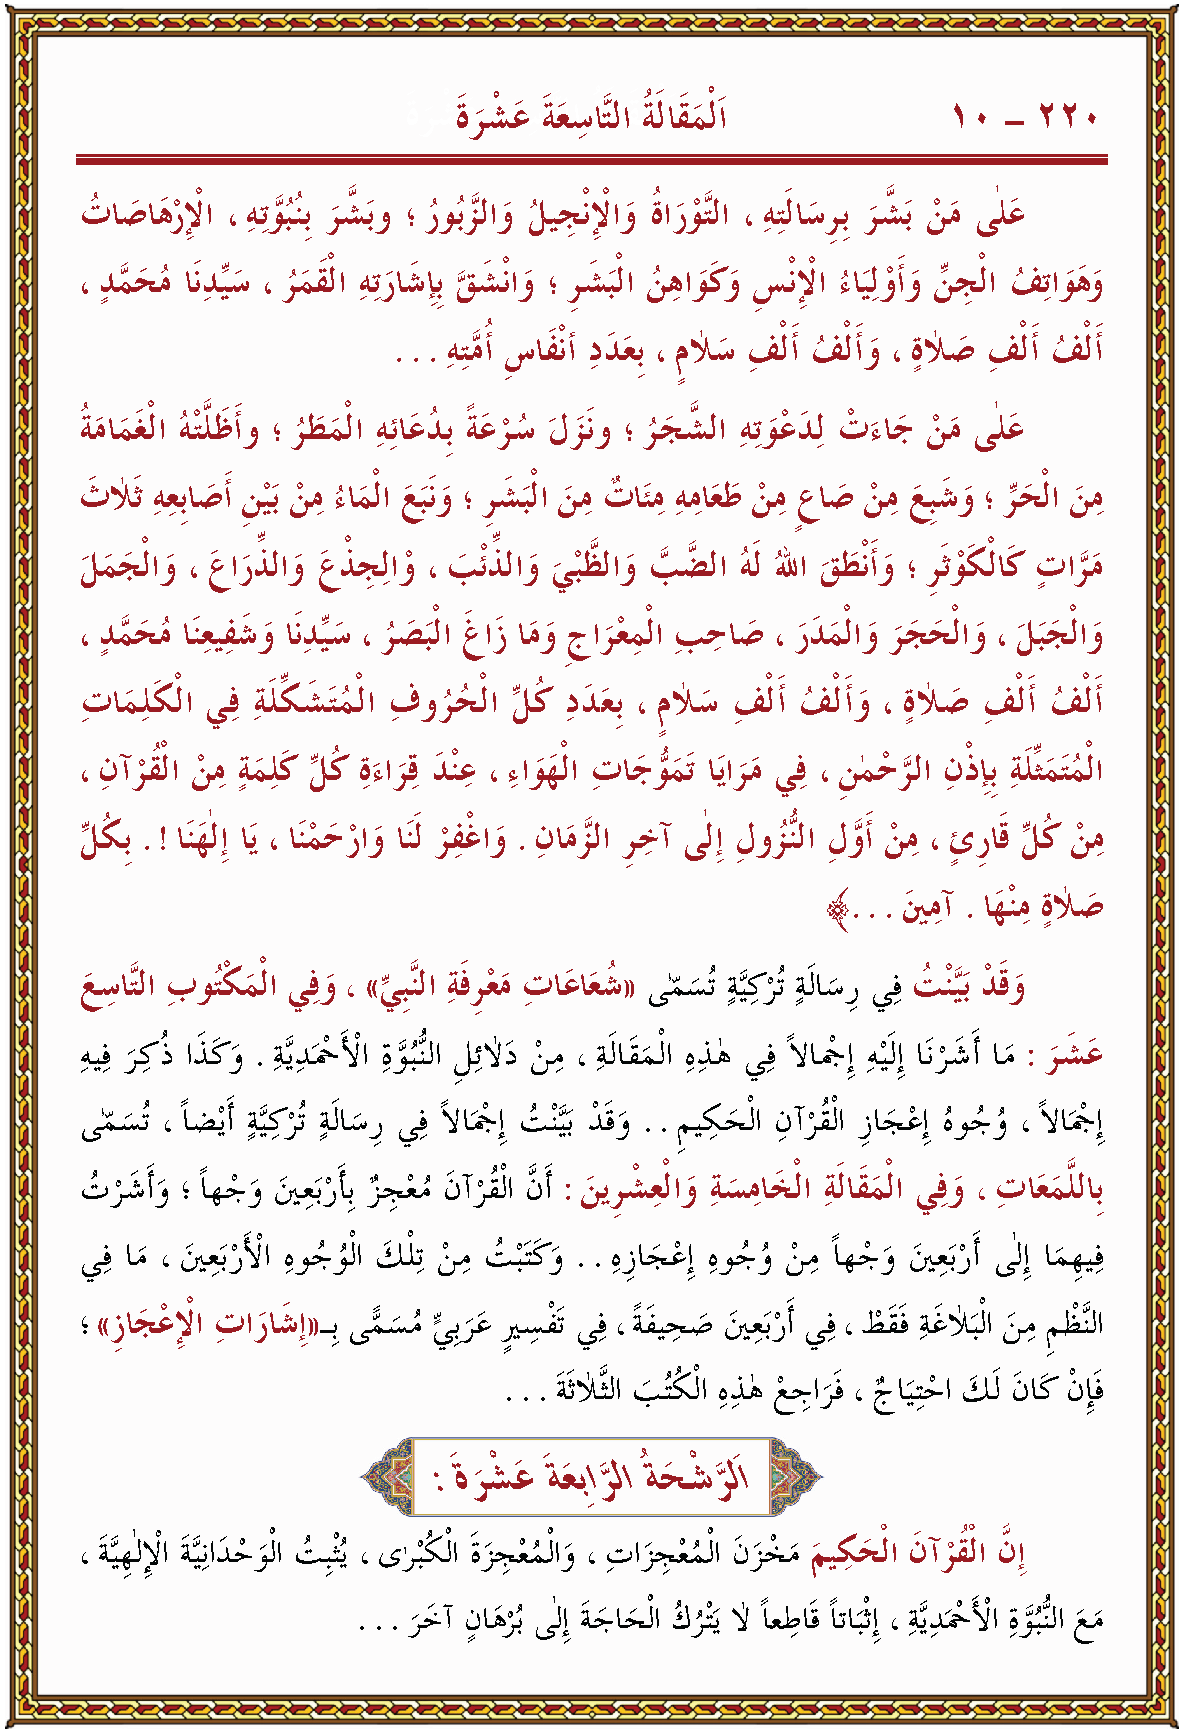 اَلْمَقَالَةُ التَّاسِعَةَ عَشْرَةَ
١٠ – ٢٢٠
عَلٰى مَنْ بَشَّرَ بِرِسَالَتِهِ ، التَّوْرَاةُ وَالْإِنْجِيلُ وَالزَّبُورُ ؛ وبَشَّرَ بِنُبُوَّتِهِ ، الْإِرْهَاصَاتُ
وَهَوَاتِفُ الْجِنِّ وَأَوْلِيَاءُ الْإِنْسِ وَكَوَاهِنُ الْبَشَرِ ؛ وَانْشَقَّ بِإِشَارَتِهِ الْقَمَرُ ، سَيِّدِنَا مُحَمَّدٍ ،
أَلْفُ أَلْفِ صَلاٰةٍ ، وَأَلْفُ أَلْفِ سَلاٰمٍ ، بِعَدَدِ أنْفَاسِ أُمَّتِهِ . . .
عَلٰى مَنْ جَاءَتْ لِدَعْوَتِهِ الشَّجَرُ ؛ ونَزَلَ سُرْعَةً بِدُعَائِهِ الْمَطَرُ ؛ وأَظَلَّتْهُ الْغَمَامَةُ
مِنَ الْحَرِّ ؛ وَشَبِعَ مِنْ صَاعٍ مِنْ طَعَامِهِ مِئَاتٌ مِنَ الْبَشَرِ ؛ وَنَبَعَ الْمَاءُ مِنْ بَيْنِ أَصَابِعِهِ ثَلاٰثَ
مَرَّاتٍ كَالْكَوْثَرِ ؛ وَأَنْطَقَ اللهُ لَهُ الضَّبَّ وَالظَّبْيَ وَالذِّئْبَ ، وْالْجِذْعَ وَالذِّرَاعَ ، وَالْجَمَلَ
وَالْجَبَلَ ، وَالْحَجَرَ وَالْمَدَرَ ، صَاحِبِ الْمِعْرَاجِ وَمَا زَاغَ الْبَصَرُ ، سَيِّدِنَا وَشَفِيعِنَا مُحَمَّدٍ ،
أَلْفُ أَلْفِ صَلاٰةٍ ، وَأَلْفُ أَلْفِ سَلاٰمٍ ، بِعَدَدِ كُلِّ الْحُرُوفِ الْمُتَشَكِّلَةِ فِي الْكَلِمَاتِ
الْمُتَمَثِّلَةِ بِإِذْنِ الرَّحْمٰنِ ، فِي مَرَايَا تَمَوُّجَاتِ الْهَوَاءِ ، عِنْدَ قِرَاءَةِ كُلِّ كَلِمَةٍ مِنْ الْقُرْآنِ ،
مِنْ كُلِّ قَارِئٍ ، مِنْ أَوَّلِ النُّزُولِ إِلٰى آخِرِ الزَّمَانِ . وَاغْفِرْ لَنَا وَارْحَمْنَا ، يَا إِلٰهَنَا ! . بِكُلِّ
صَلاٰةٍ مِنْهَا . آمِينَ . . . ﴾
وَقَدْ بَيَّنْتُ فِي رِسَالَةٍ تُرْكِيَّةٍ تُسَمّٰى «شُعَاعَاتِ مَعْرِفَةِ النَّبِيِّ» ، وَفِي الْمَكْتُوبِ التَّاسِعَ
عَشَرَ : مَا أَشَرْنَا إِلَيْهِ إِجْمَالاً فِي هٰذِهِ الْمَقَالَةِ ، مِنْ دَلاٰئِلِ النُّبُوَّةِ الْأَحْمَدِيَّةِ . وَكَذَا ذُكِرَ فِيهِ
إِجْمَالاً ، وُجُوهُ إِعْجَازِ الْقُرْآنِ الْحَكِيمِ . . وَقَدْ بَيَّنْتُ إِجْمَالاً فِي رِسَالَةٍ تُرْكِيَّةٍ أَيْضاً ، تُسَمّٰى
بِاللَّمَعَاتِ ، وَفِي الْمَقَالَةِ الْخَامِسَةِ وَالْعِشْرِينَ : أَنَّ الْقُرْآنَ مُعْجِزٌ بِأَرْبَعِينَ وَجْهاً ؛ وَأَشَرْتُ
فِيهِمَا إِلٰى أَرْبَعِينَ وَجْهاً مِنْ وُجُوهِ إِعْجَازِهِ . . وَكَتَبْتُ مِنْ تِلْكَ الْوُجُوهِ الْأَرْبَعِينَ ، مَا فِي
النَّظْمِ مِنَ الْبَلاٰغَةِ فَقَطْ ، فِي أَرْبَعِينَ صَحِيفَةً ، فِي تَفْسِيرٍ عَرَبِيٍّ مُسَمًّى بِـ«إِشَارَاتِ الْإِعْجَازِ» ؛
فَإِنْ كَانَ لَكَ احْتِيَاجٌ ، فَرَاجِعْ هٰذِهِ الْكُتُبَ الثَّلاٰثَةَ . . .
اَلرَّشْحَةُ الرَّابِعَةَ عَشْرَةَ :
إِنَّ الْقُرْآنَ الْحَكِيمَ مَخْزَنَ الْمُعْجِزَاتِ ، وَالْمُعْجِزَةَ الْكُبْرٰى ، يُثْبِتُ الْوَحْدَانِيَّةَ الْإِلٰهِيَّةَ ،
مَعَ النُّبُوَّةِ الْأَحْمَدِيَّةِ ، إِثْبَاتاً قَاطِعاً لاٰ يَتْرُكُ الْحَاجَةَ إِلٰى بُرْهَانٍ آخَرَ . . .